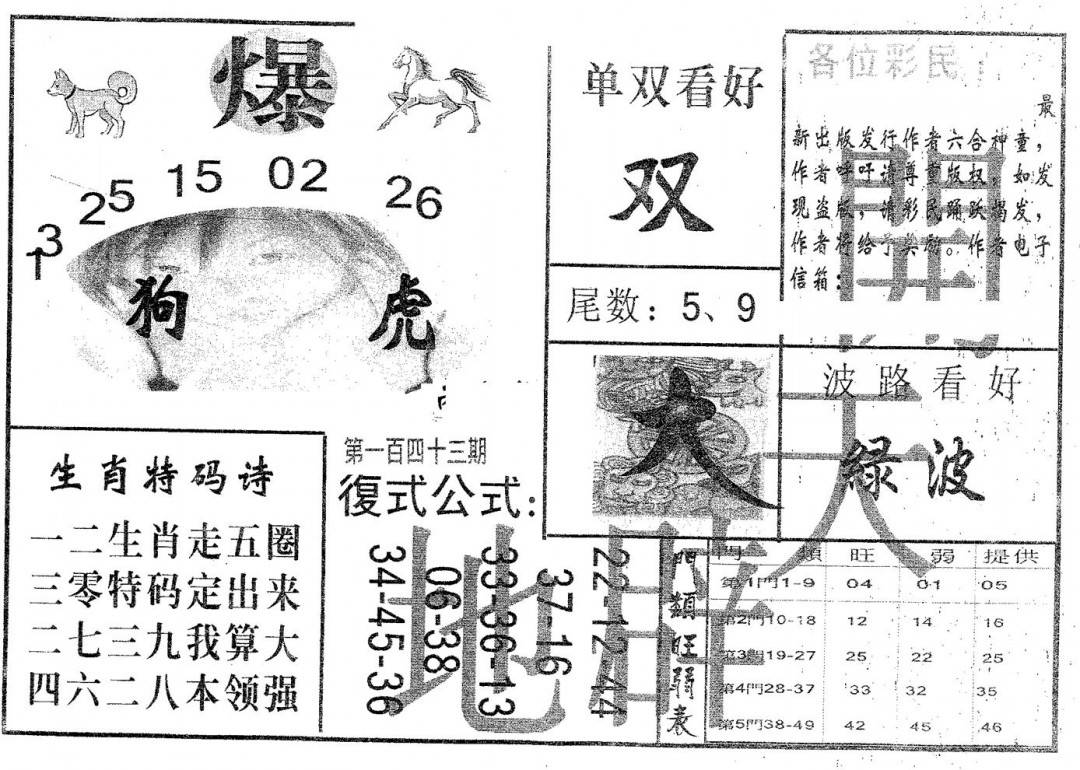 爆
13
25
15
02
26
狗
虎
单双看好
双
尾数：5、9
大
各位彩民
最
新出版发行作者六合神童，
作者呼吁请尊重版权，如发
现盗版，请彩民踊跃揭发，
作者将给予奖励。作者电子
信箱：
波路看好
綠波
生肖特码诗
一二生肖走五圈
三零特码定出来
二七三九我算大
四六二八本领强
第一百四十三期
復式公式：
34-45-36
06-38
33-36-13
37-16
22-12-44
門類旺弱表
門類 旺 弱 提供
第1門1-9 04 01 05
第2門10-18 12 14 16
第3門19-27 25 22 25
第4門28-37 33 32 35
第5門38-49 42 45 46
天
地